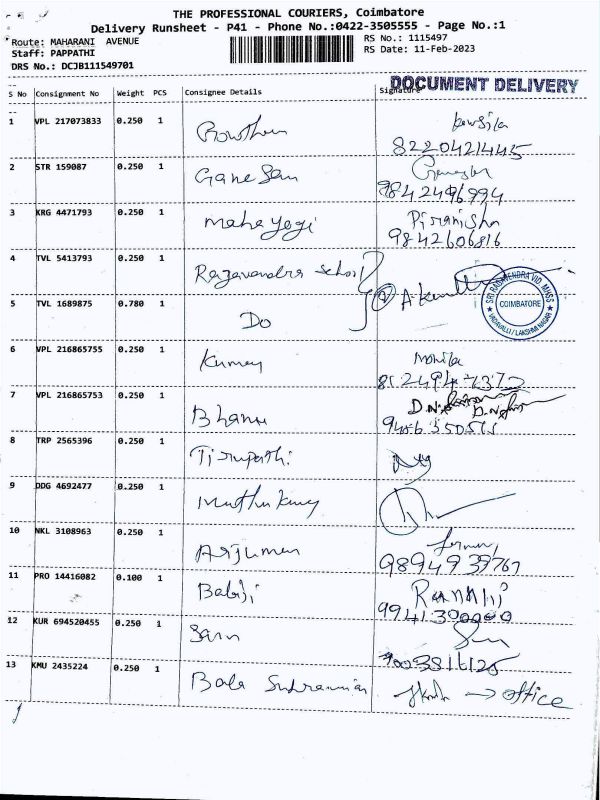 THE PROFESSIONAL COURIERS, Coimbatore
Delivery Runsheet - P41 - Phone No.:0422-3505555 - Page No.:1
Route: MAHARANI AVENUE
RS No.: 1115497
Staff: PAPPATHI
RS Date: 11-Feb-2023
DRS No.: DCJB111549701
DOCUMENT DELIVERY
S No Consignment No Weight PCS Consignee Details Signature
1 VPL 217073833 0.250 1 Gowtham
8220421445
2 STR 159087 0.250 1 Ganesan
9842496994
3 KRG 4471793 0.250 1 Mahayogi
9842606816
4 TVL 5413793 0.250 1 Ragavandra School
SRI RAGAVENDRA VID. MHSS
COIMBATORE
VADAVALLI / LAKSHMI NAGAR
5 TVL 1689875 0.780 1 Do
6 VPL 216865755 0.250 1 Kumar
7 VPL 216865753 0.250 1 Bhanu
8 TRP 2565396 0.250 1 Tirupathi
9 DDG 4692477 0.250 1 Muthu Kumar
10 NKL 3108963 0.250 1 Arjunan
9894939767
11 PRO 14416082 0.100 1 Babiji
9941300000
12 KUR 694520455 0.250 1 Saru
13 KMU 2435224 0.250 1 Bala Subramanian
→ office